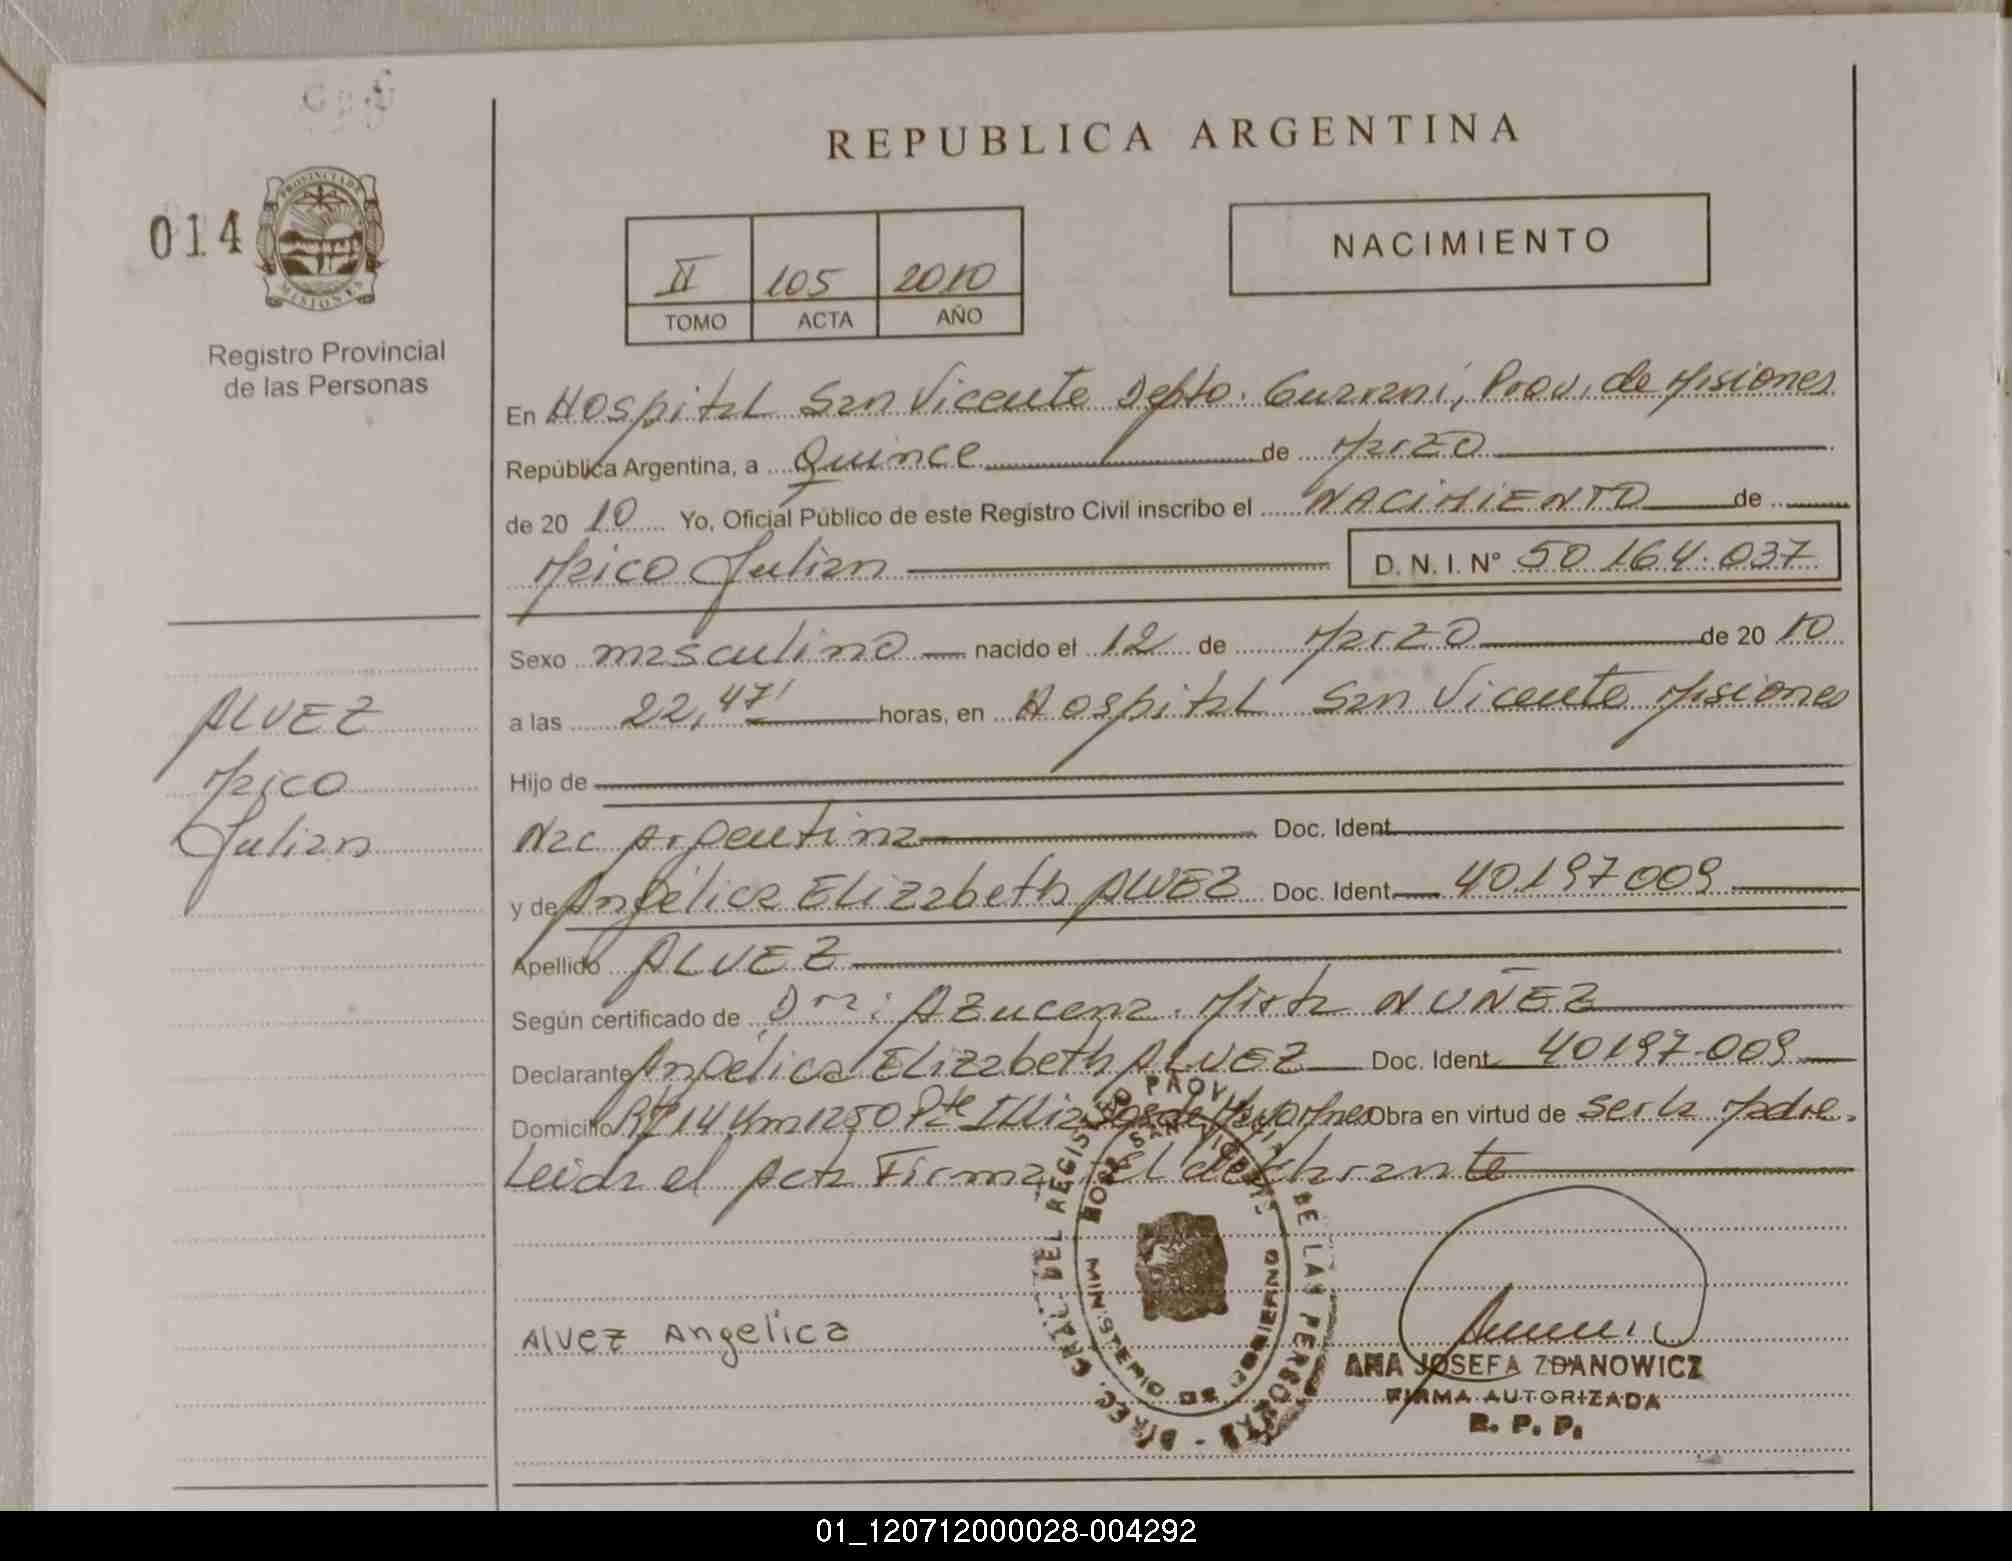 014
PROVINCIA DE
MISIONES
Registro Provincial
de las Personas
ALVEZ
Maico
Julian
REPUBLICA ARGENTINA
II 105 2010
TOMO ACTA AÑO
NACIMIENTO
En Hospital San Vicente Depto. Guarani, Prov. de Misiones
República Argentina, a Quince de Marzo
de 20 10 Yo, Oficial Público de este Registro Civil inscribo el NACIMIENTO de
Maico Julian D. N. I. Nº 50.164.037
Sexo masculino nacido el 12 de Marzo de 20 10
a las 22,47' horas, en Hospital San Vicente Misiones
Hijo de
Nac Argentina Doc. Ident.
y de Angélica Elizabeth ALVEZ Doc. Ident. 40.197.009
Apellido ALVEZ
Según certificado de Dra: Azucena Mirta NUÑEZ
Declarante Angélica Elizabeth ALVEZ Doc. Ident. 40197.009
Domicilio Rta 14 Km 1250 Pte Illia Obra en virtud de ser la Madre.
Leida el Acta Firma El declarante
DIREC. GRAL. DEL REGISTRO PROV. DE LAS PERSONAS
HOSP. SAN VICENTE
MINISTERIO DE GOBIERNO
Alvez Angelica
ANA JOSEFA ZDANOWICZ
FIRMA AUTORIZADA
R. P. P.
01_120712000028-004292